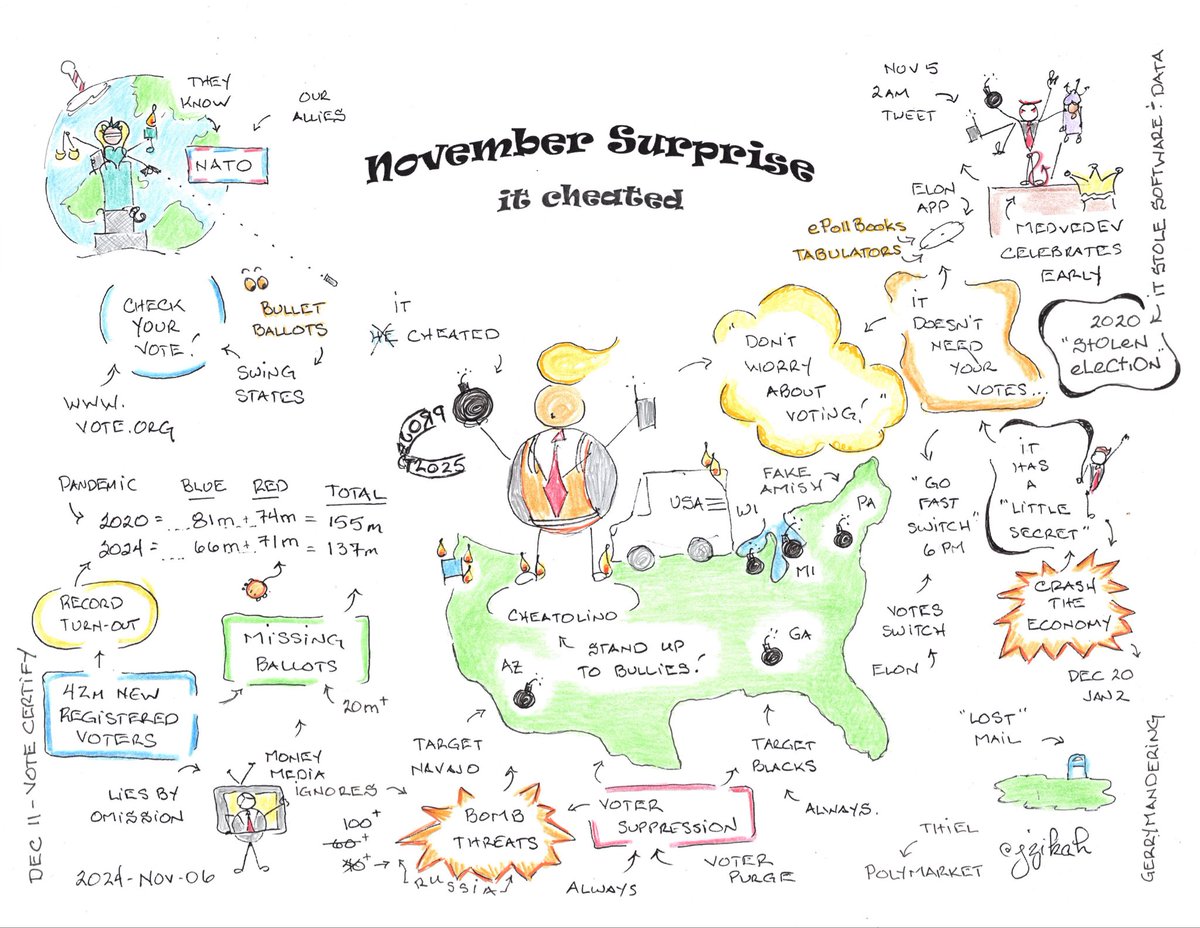 November Surprise
it cheated
THEY
KNOW
OUR
ALLIES
NATO
NOV 5
2AM
TWEET
ELON
APP
ePollBooks
TABULATORS
MEDVEDEV
CELEBRATES
EARLY
IT STOLE SOFTWARE + DATA
CHECK
YOUR
VOTE!
WWW.
VOTE.ORG
BULLET
BALLOTS
SWING
STATES
IT
HE CHEATED
PROJ
T2025
"DON'T
WORRY
ABOUT
VOTING!"
IT
DOESN'T
NEED
YOUR
VOTES...
2020
"STOLEN
ELECTION"
PANDEMIC
BLUE RED TOTAL
2020 = ... 81m + 74m = 155m
2024 = ... 66m + 71m = 137m
RECORD
TURN-OUT
MISSING
BALLOTS
20m+
42M NEW
REGISTERED
VOTERS
LIES BY
OMISSION
MONEY
MEDIA
IGNORES
DEC 11 - VOTE CERTIFY
2024-NOV-06
USA
FAKE
AMISH
WI
PA
MI
GA
AZ
CHEATOLINO
STAND UP
TO BULLIES!
"GO
FAST
SWITCH"
6 PM
VOTES
SWITCH
ELON
IT
HAS
A
"LITTLE
SECRET"
CRASH
THE
ECONOMY
DEC 20
JAN 2
TARGET
NAVAJO
TARGET
BLACKS
ALWAYS.
BOMB
THREATS
100+
60+
30+
RUSSIA
VOTER
SUPPRESSION
ALWAYS
VOTER
PURGE
"LOST"
MAIL
THIEL
POLYMARKET
@jzikah
GERRYMANDERING